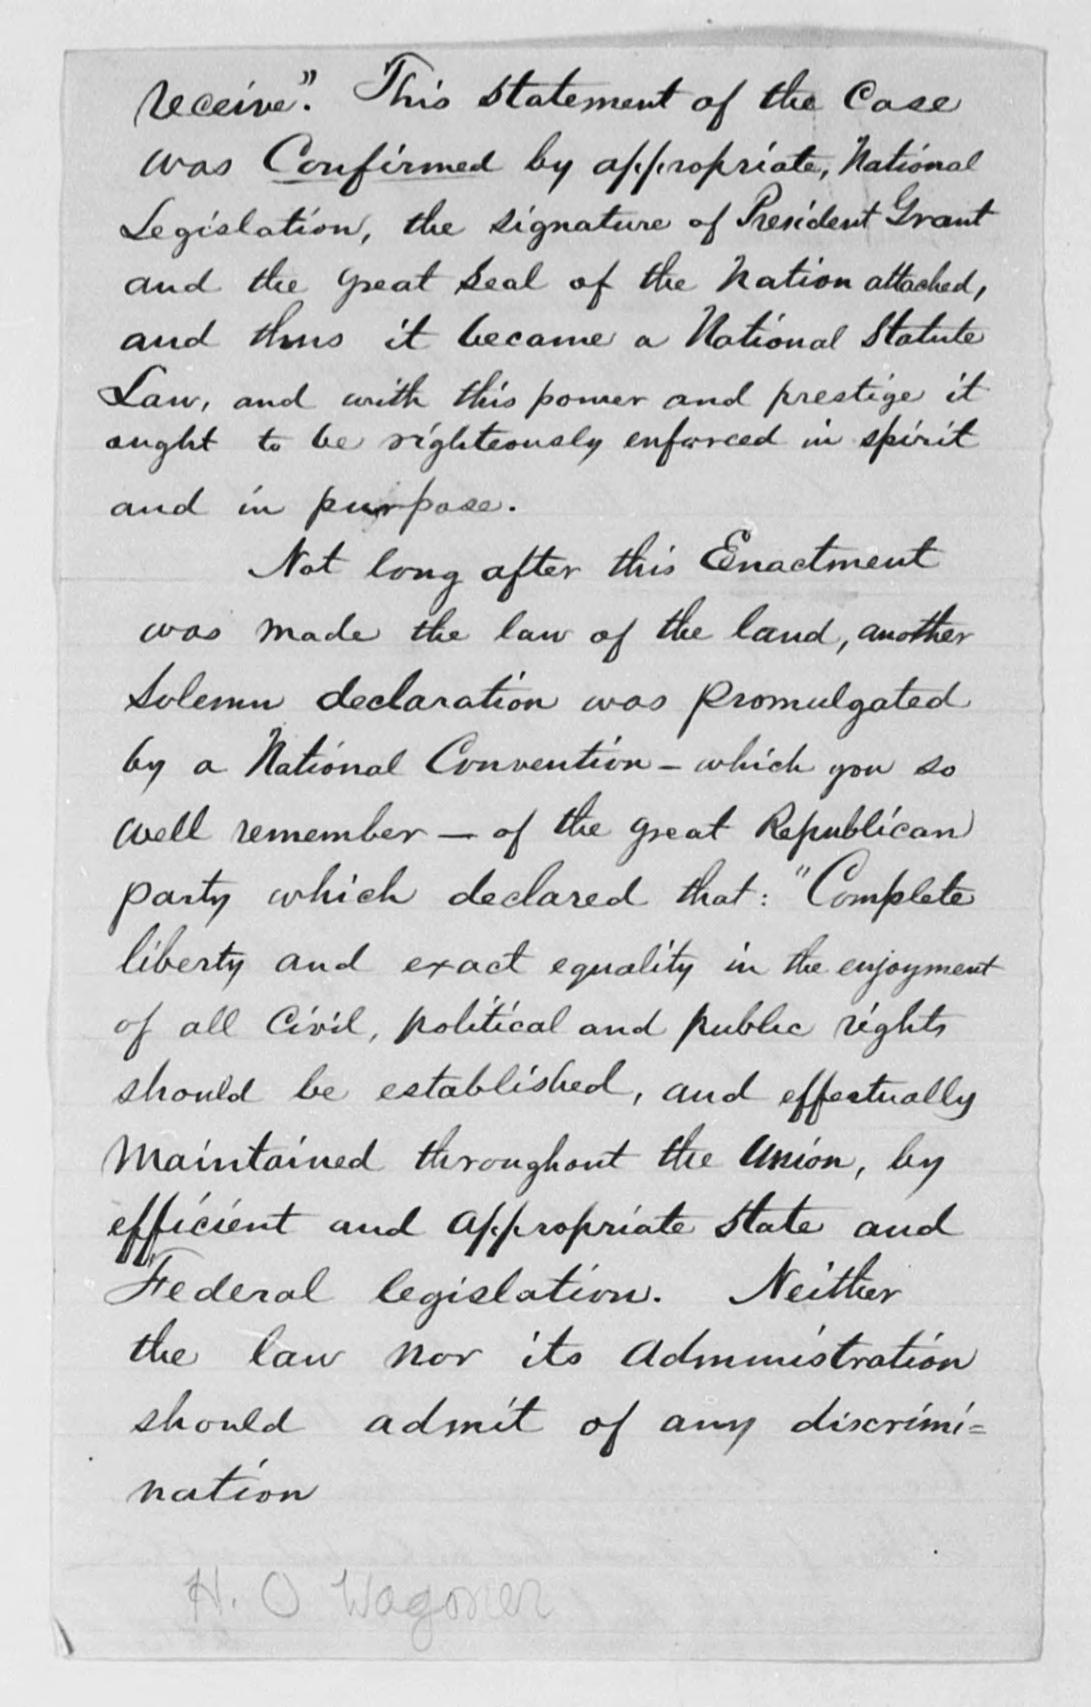 receive". This statement of the Case
was Confirmed by appropriate, National
Legislation, the signature of President Grant
and the great seal of the Nation attached,
and thus it became a National Statute
Law, and with this power and prestige it
ought to be righteously enforced in spirit
and in purpose.
Not long after this Enactment
was made the law of the land, another
Solemn declaration was promulgated
by a National Convention – which you so
well remember – of the great Republican
party which declared that: "Complete
liberty and exact equality in the enjoyment
of all Civil, political and public rights
should be established, and effectually
Maintained throughout the Union, by
efficient and appropriate State and
Federal legislation. Neither
the law nor its administration
should admit of any discrimi=
nation
H. O Wagoner